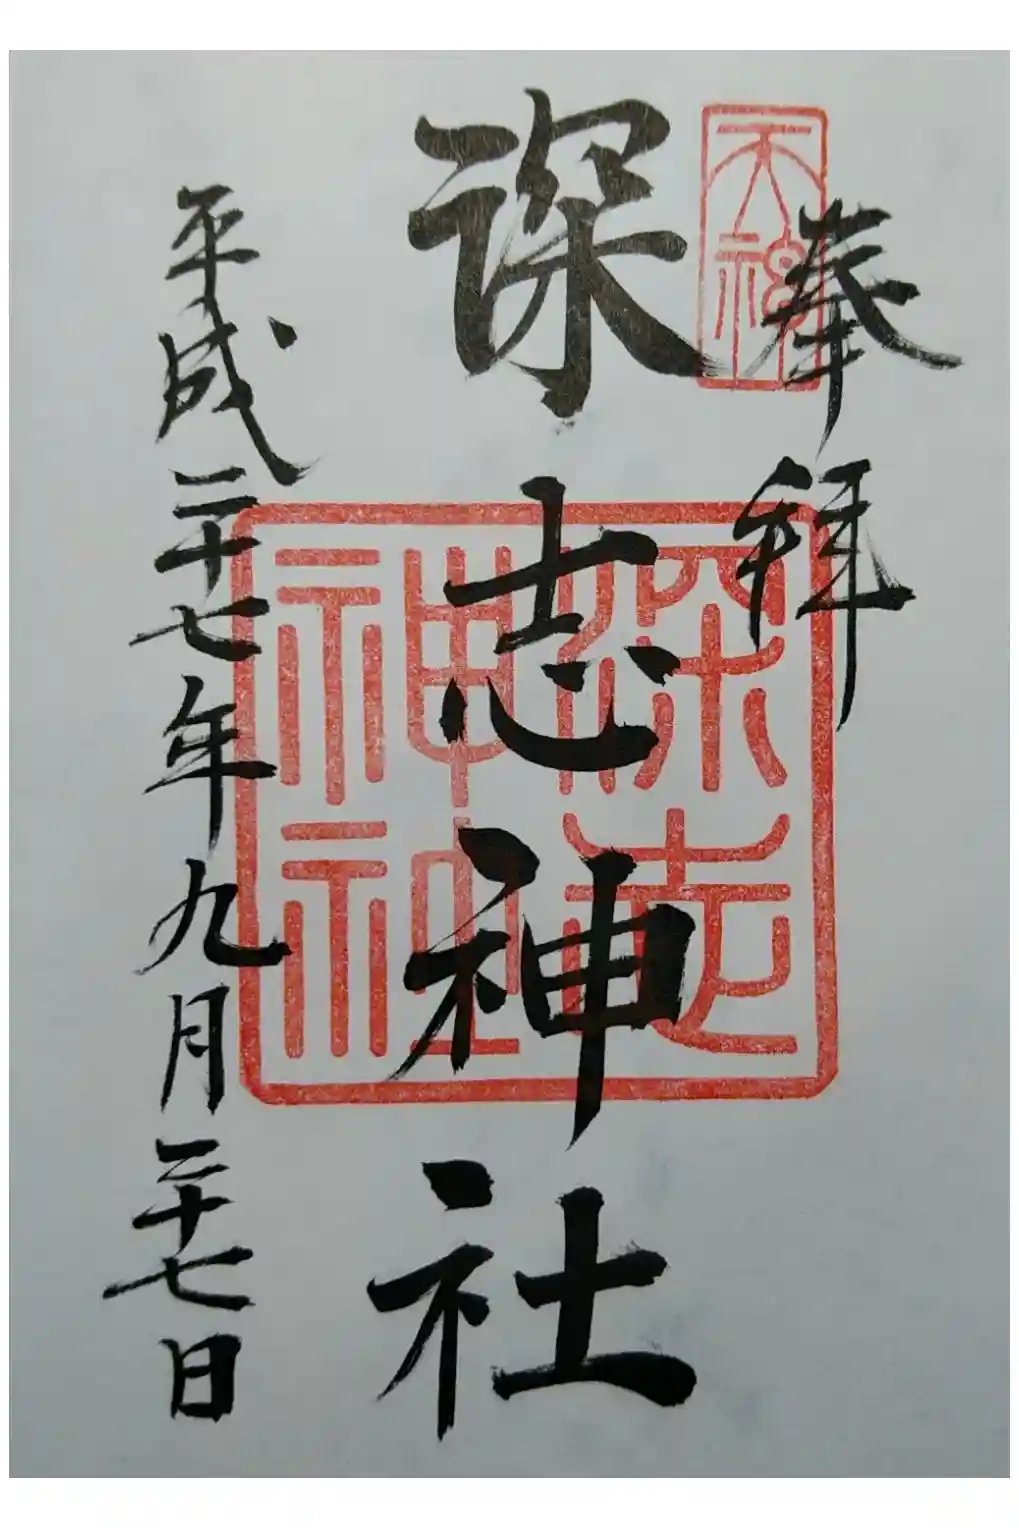 天神
奉拝
深志神社
深志
神社
平成二十七年九月二十七日